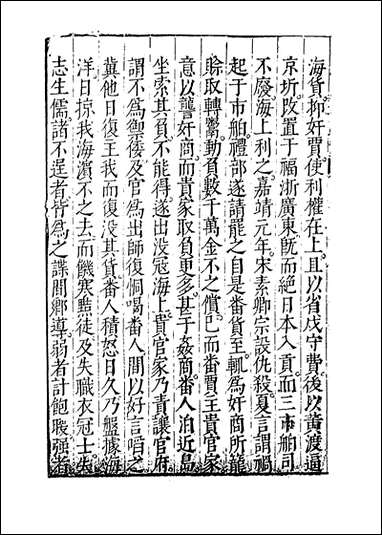 海貨抑奸賈使利權在上且以省戍守費後以黃渡逼
京圻改置于福浙廣東旣而絕日本入貢而三市舶司
不廢海上利之嘉靖元年宋素卿宗設仇殺夏言謂禍
起于市舶禮部遂請罷之自是番貨至輒爲奸商所籠
賒取轉鬻動負數千萬金不之償已而番賈主貴官家
意以讋奸商而貴家取負更多甚于姦商番人泊近島
坐索其負不能得遂出没寇海上貴官家乃責讓官府
謂不爲御倭及官爲出師復恫喝番人間以好言啗之
冀他日復主我而復没其貨番人積怒日久乃盤據海
洋日掠我海濵不之去而饑寒黠徒及失職衣冠士失
志生儒諸不逞者皆爲之諜間鄉導弱者計飽煖强者